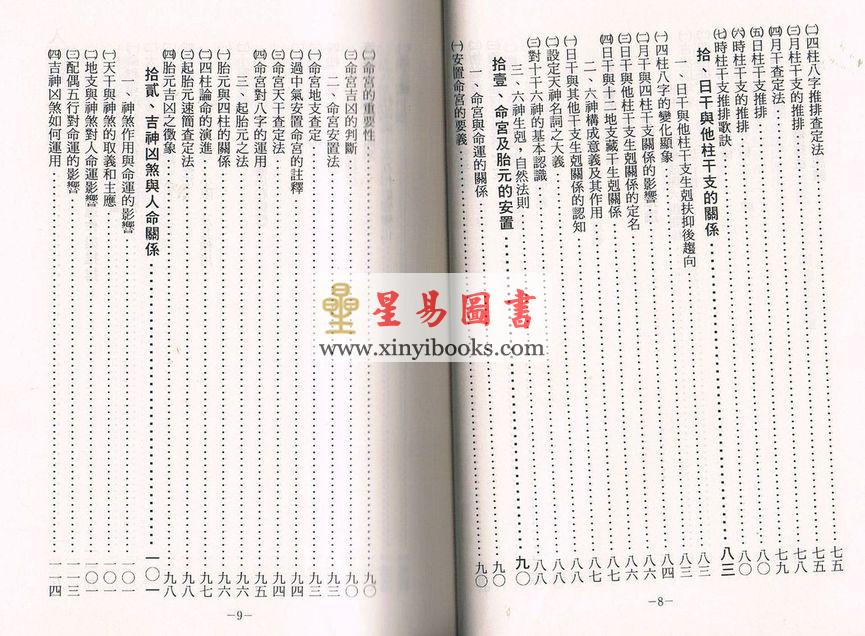 ㈡四柱八字推排查定法……七五
㈢月柱干支的推排……七八
㈣月干查定法……七九
㈤日柱干支推排……八〇
㈥時柱干支的推排……八〇
㈦時柱干支推排歌訣
拾、日干與他柱干支的關係……八三
一、日干與他柱干支生剋扶抑後趨向……八三
㈠四柱八字的變化顯象……八四
㈡月干與四柱干支關係的影響……八六
㈢日干與他柱干支生剋關係的定名……八六
㈣日干與十二地支藏干生剋關係……八七
二、六神構成意義及其作用……八七
㈠日干與其他天干生剋關係的認知……八七
㈡設定天神名詞之大義……八八
㈢對十干六神的基本認識……八八
三、六神生剋，自然法則
拾壹、命宮及胎元的安置……九〇
一、命宮與命運的關係……九〇
㈠安置命宮的要義……九〇
—8—
㈡命宮的重要性……九〇
㈢命宮吉凶的判斷……九〇
二、命宮安置法
㈠命宮地支查定……九三
㈡過中氣安置命宮的註釋……九四
㈢命宮天干查定法……九四
㈣命宮對八字的運用……九五
三、起胎元之法
㈠胎元與四柱的關係……九六
㈡四柱論命的演進……九七
㈢起胎元速簡查定法……九八
㈣胎元吉凶之徵象……九八
拾貳、吉神凶煞與人命關係……一〇一
一、神煞作用與命運的影響……一〇一
㈠天干與神煞的取義和主應……一〇一
㈡地支與神煞對人命運影響……一〇一
㈢配偶五行對命運的影響……一一三
㈣吉神凶煞如何運用……一一四
—9—
星易圖書
www.xinyibooks.com